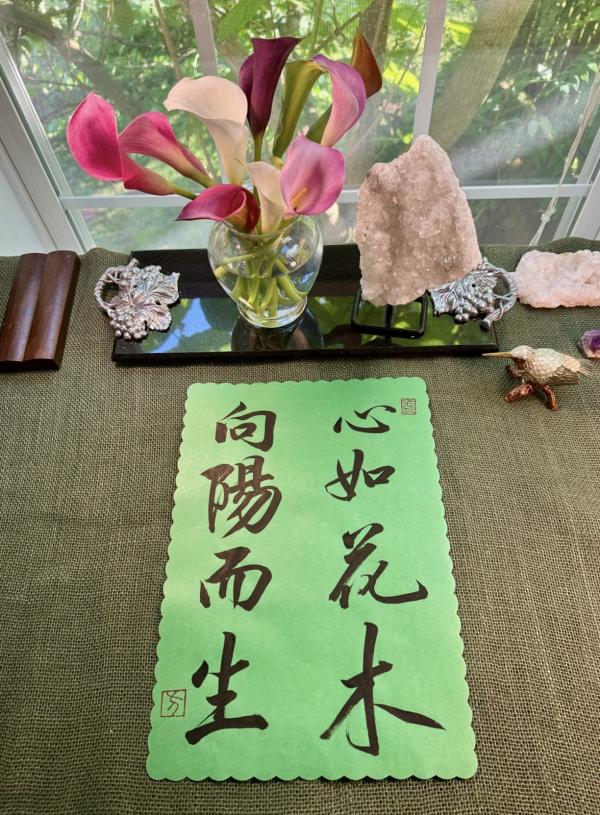 心如花木
向陽而生